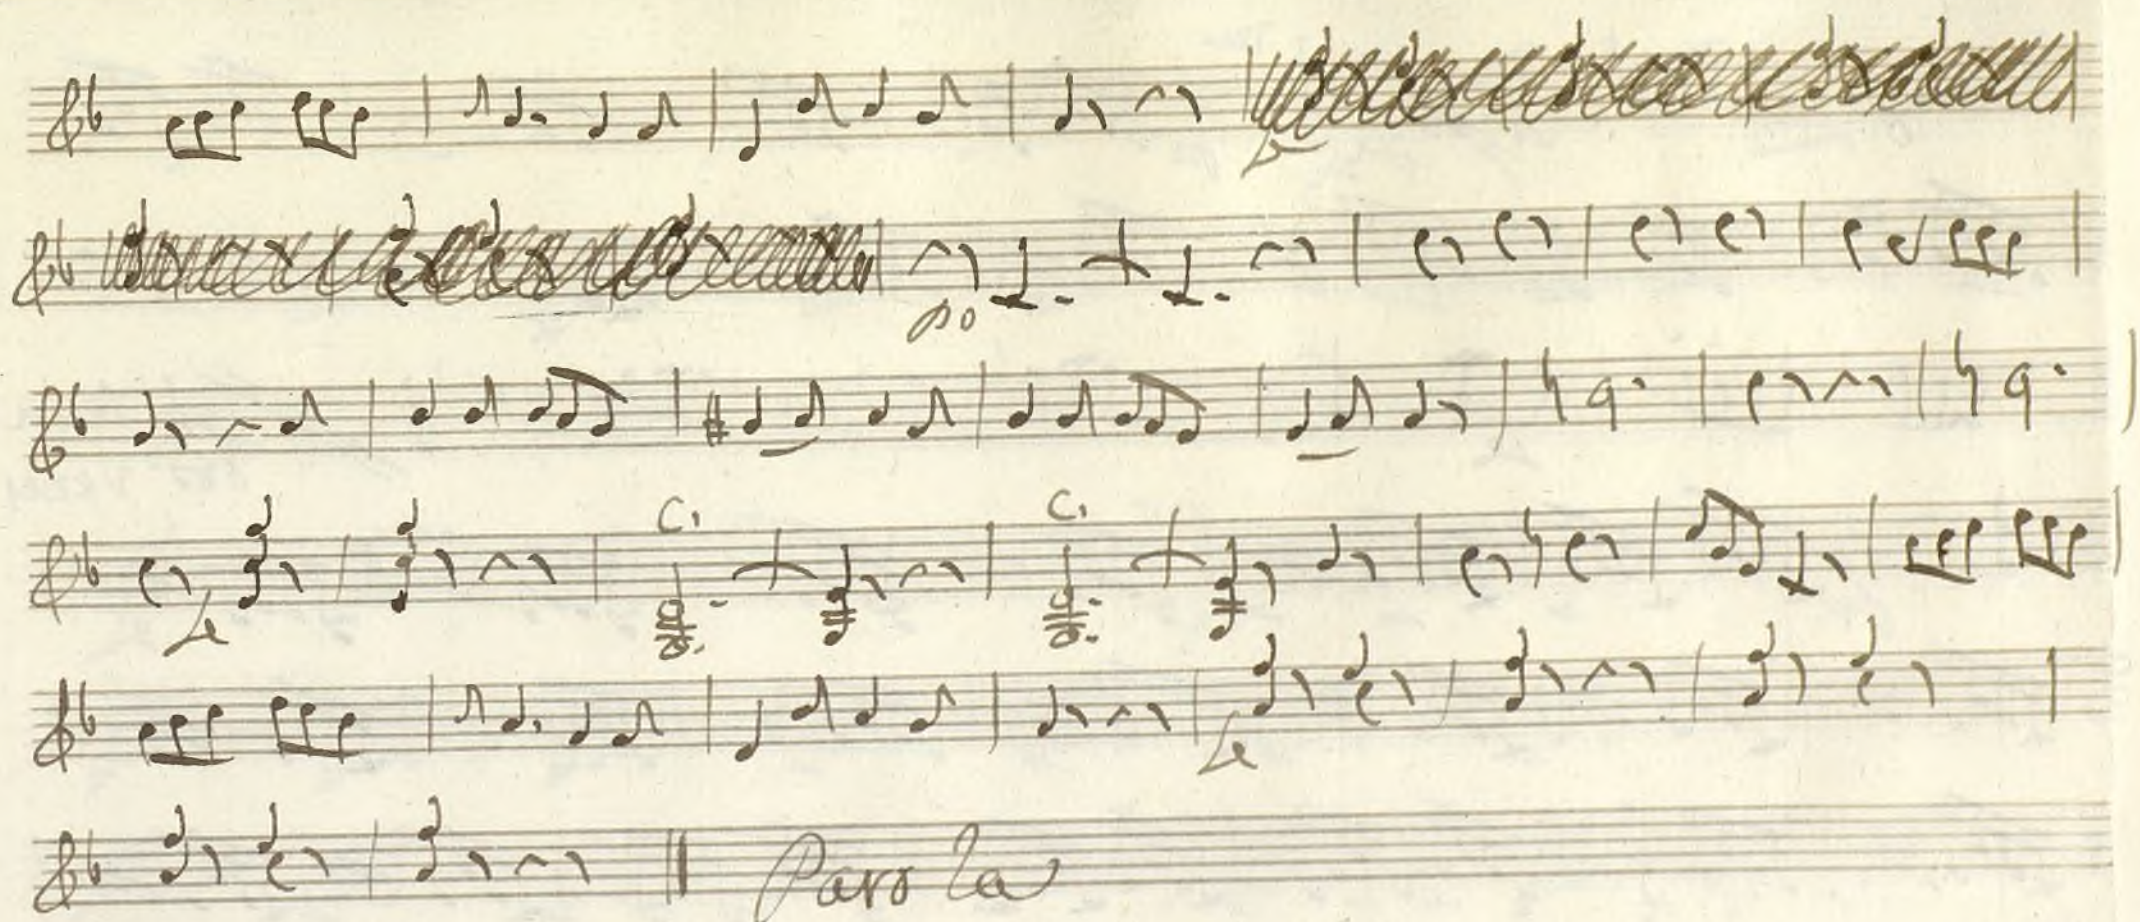 po
C. C.
Parola